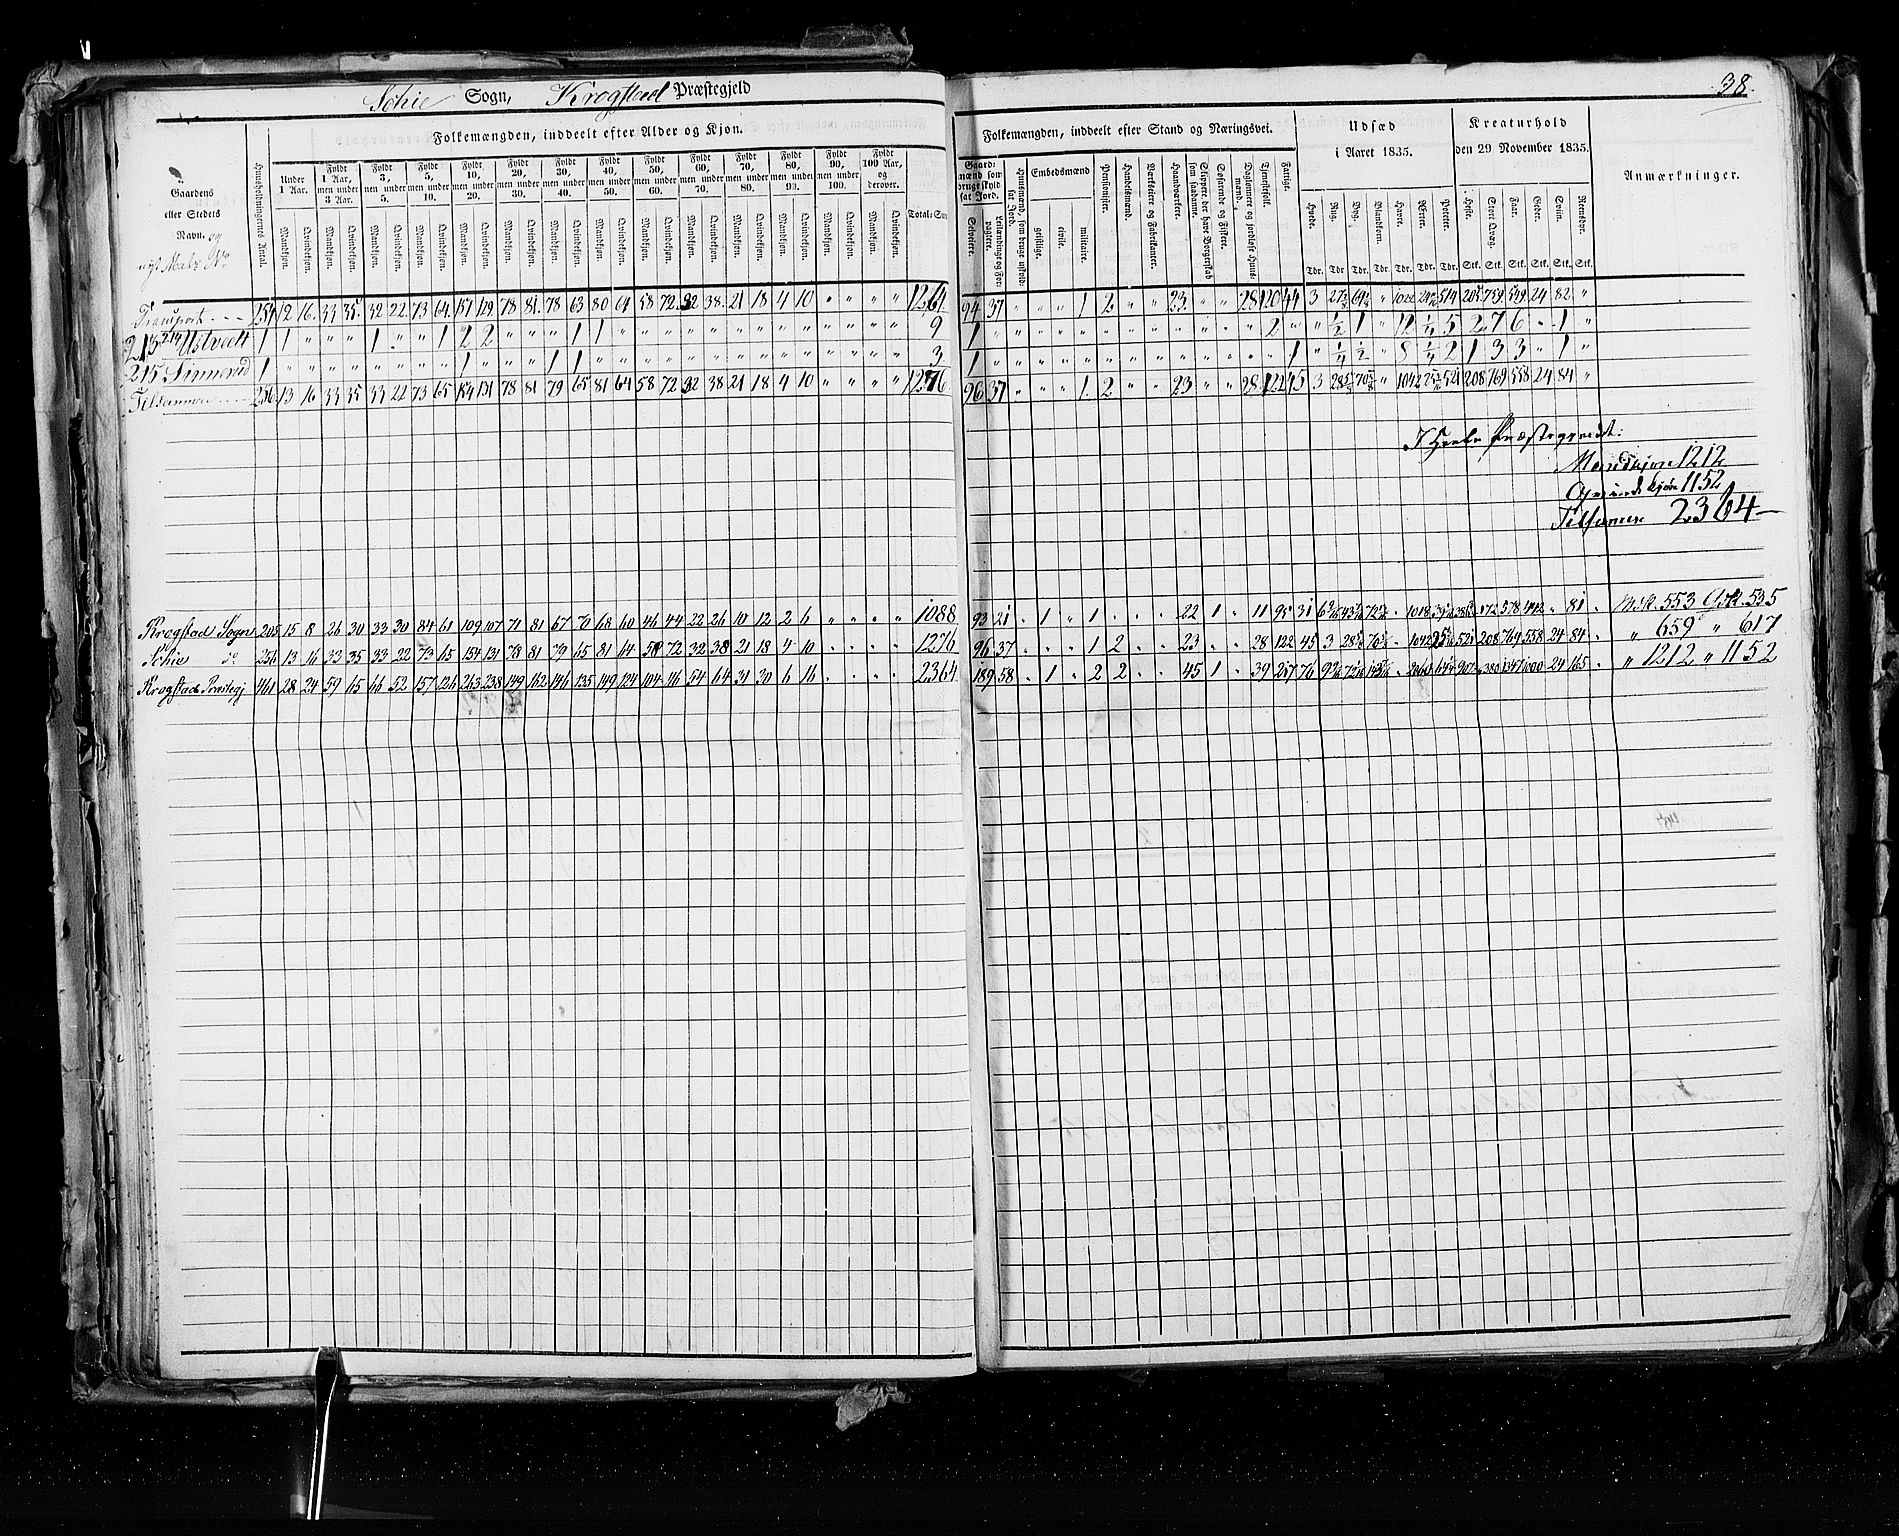 Schie Sogn, Krogstad Præstegjeld
38.
Folkemængden, inddeelt efter Alder og Kjøn.
Gaardens eller Stedets Navn. og nyt Matr No
Huusholdningernes Antal.
Under 1 Aar.
Fyldt 1 Aar, men under 3 Aar.
Fyldt 3, men under 5.
Fyldt 5, men under 10.
Fyldt 10, men under 20.
Fyldt 20, men under 30.
Fyldt 30, men under 40.
Fyldt 40, men under 50.
Fyldt 50, men under 60.
Fyldt 60, men under 70.
Fyldt 70, men under 80.
Fyldt 80, men under 90.
Fyldt 90, men under 100.
Fyldt 100 Aar, og derover.
Total-Sum
Mandkjøn. Qvindekjøn. Mandkjøn. Qvindekjøn. Mandkjøn. Qvindekjøn. Mandkjøn. Qvindekjøn. Mandkjøn. Qvindekjøn. Mandkjøn. Qvindekjøn. Mandkjøn. Qvindekjøn. Mandkjøn. Qvindekjøn. Mandkjøn. Qvindekjøn. Mandkjøn. Qvindekjøn. Mandkjøn. Qvindekjøn. Mandkjøn. Qvindekjøn. Mandkjøn. Qvindekjøn. Mandkjøn. Qvindekjøn.
Transport 254 12 16 33 35 32 22 73 64 151 129 78 81 78 63 80 64 58 72 32 38 21 18 4 10 " " " " 1264
213 214 Ustvedt 1 1 " " " 1 " " 1 2 2 " " " 1 1 9
215 Sinnerud 1 3
Tilsammen 256 13 16 33 35 33 22 73 65 154 131 78 81 79 65 81 64 58 72 32 38 21 18 4 10 " " " " 1276
Krogstad Sogn 205 15 8 26 30 33 30 84 61 109 107 71 81 67 70 68 60 46 44 22 26 10 12 2 6 " " " " 1088
Schie do 256 13 16 33 35 33 22 73 65 154 131 78 81 79 65 81 64 58 72 32 38 21 18 4 10 " " " " 1276
Krogstad Præstegj 461 28 24 59 65 66 52 157 126 263 238 149 162 146 135 149 124 104 116 54 64 31 30 6 16 " " " " 2364
Folkemængden, inddeelt efter Stand og Næringsvei.
Gaardmænd som bruge skyldsat Jord.
Selveiere.
Leilændinge og Forpagtere.
Huusmænd, som bruge uskyldsat Jord.
Embedsmænd
geistlige.
civile.
militaire.
Pensionister.
Handelsmænd.
Værkseiere og Fabrikanter.
Haandværkere.
Skippere der have Borgerskab som saadanne.
Søfarende og Fiskere.
Daglønnere og jordløse Huusmænd.
Tjenestefolk.
Fattige.
Udsæd i Aaret 1835.
Hvede. Rug. Byg. Blandkorn. Havre. Ærter. Poteter.
Tdr. Tdr. Tdr. Tdr. Tdr. Tdr. Tdr.
Kreaturhold den 29 November 1835.
Heste. Stort Qvæg. Faar. Geder. Sviin. Rensdyr.
Stk. Stk. Stk. Stk. Stk. Stk.
Anmærkninger.
94 37 " " " 1 2 " " 23 " " 28 120 44 3 514 205 759 549 24 82 "
1 2 " " 1/2 1 " 12 1/4 5 2 7 6 " 1 "
1 1 " 1/4 1/2 " 8 1/4 2 1 3 3 " 1 "
96 37 " " " 1 2 " " 23 " " 28 122 45 3 521 208 769 558 24 84 "
Mandkjøn 1212
Qvindekjøn 1152
Tilsammen 2364
93 21 " 1 " 1 " " " 22 1 " 11 95 31 172 578 442 " 81 " Mdk. 553 Qvk. 535
96 37 " " " 1 2 " " 23 " " 28 122 45 3 208 769 558 24 84 " " 659 " 617
189 58 " 1 " 2 2 " " 45 1 " 39 217 76 380 1347 1000 24 165 " " 1212 " 1152